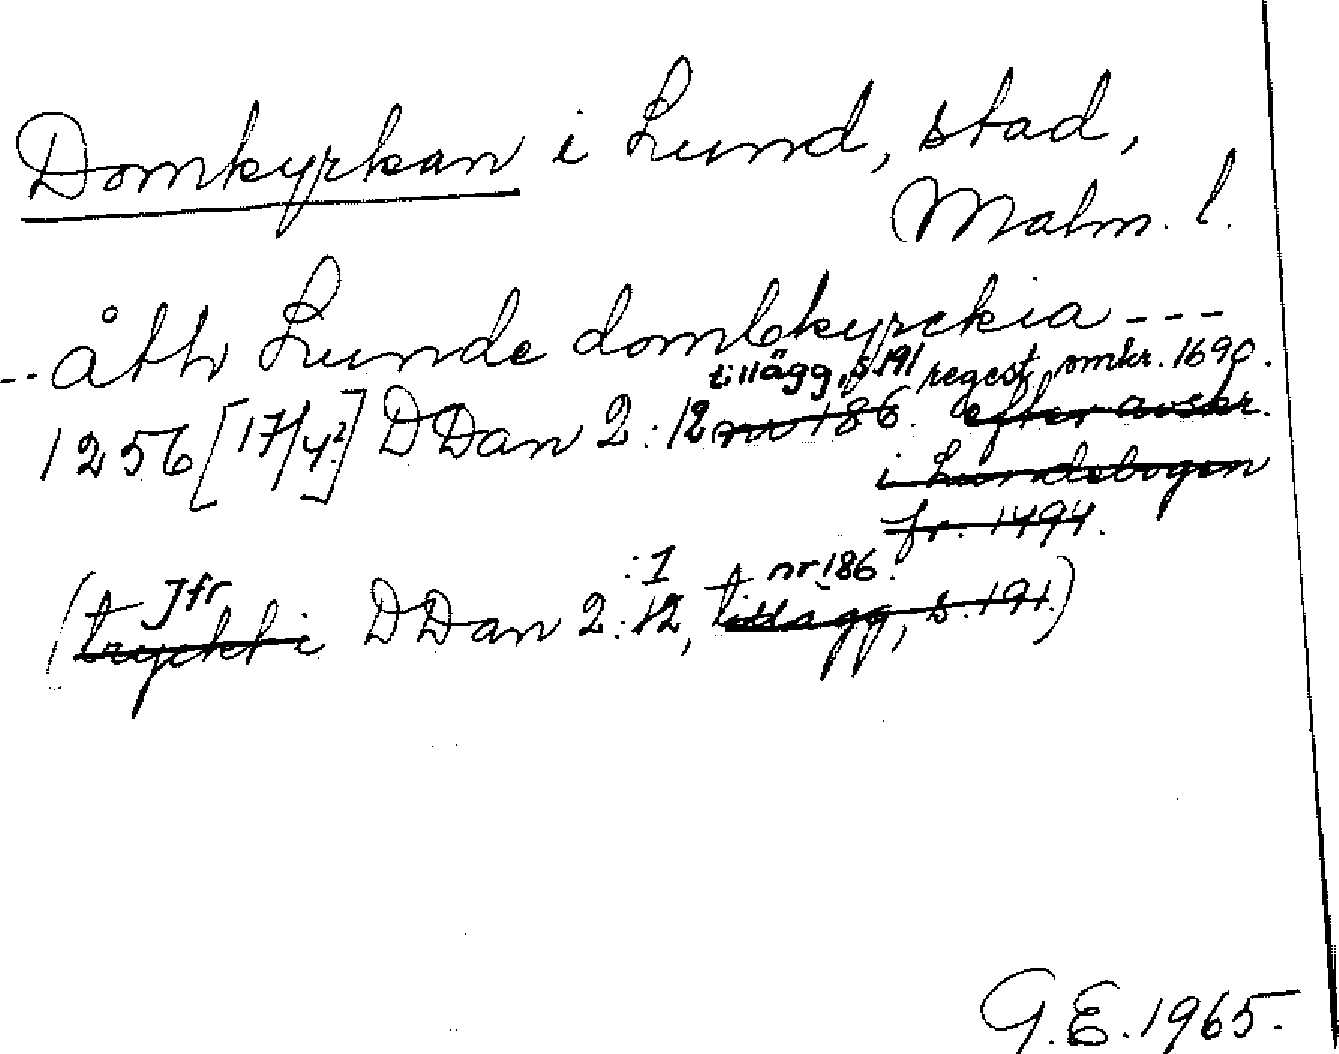 Domkyrkan i Lund, stad,
Malm. l.
-- åth Lunde dombkyrckia ---
tillägg, s. 191 regest omkr. 1690.
1256 [17/4?] DDan 2:12 nr 186. efter avskr.
i Lundebogen
fr. 1494.
:1 nr 186.
Jfr
(tryckt i DDan 2:12, tillägg, s. 191.)
G.E. 1965.